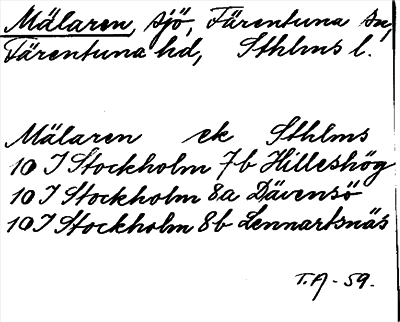 Mälaren, sjö, Färentuna sn,
Färentuna hd, Sthlms l.
Mälaren ek Sthlms
10 I Stockholm 7b Hilleshög
10 I Stockholm 8a Dävensö
10 I Stockholm 8b Lennartsnäs
T.A - 59.